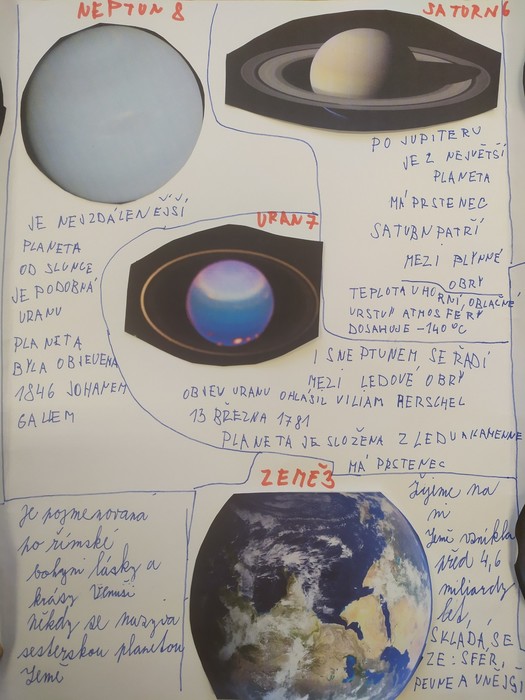 NEPTUN 8
JE NEJVZDÁLENĚJŠÍ
PLANETA
OD SLUNCE
JE PODOBNÁ
URANU
PLANETA
BYLA OBJEVENA
1846 JOHANEM
GALLEM
SATURN 6
PO JUPITERU
JE 2 NEJVĚTŠÍ
PLANETA
MÁ PRSTENEC
SATURN PATŘÍ
MEZI PLYNNÉ
OBRY
TEPLOTA V HORNÍ, OBLAČNÉ
VRSTVY ATMOSFÉRY
DOSAHUJE -140°C
URAN 7
I S NEPTUNEM SE ŘADÍ
MEZI LEDOVÉ OBRY
OBJEV URANU OHLÁSIL VILIAM HERSCHEL
13 BŘEZNA 1781
PLANETA JE SLOŽENA Z LEDU A KAMENNE
MÁ PRSTENEC
ZEMĚ 3
Je pojmenovaná
po římské
bohyni lásky a
krásy Venuši
někdy se nazýva
sesterskou planetou
Země
Žijime na
ní
Země vznikla
před 4,6
miliardy
let,
SKLÁDÁ SE
ZE: SFÉR,
PEVNÉ A VNĚJŠÍ